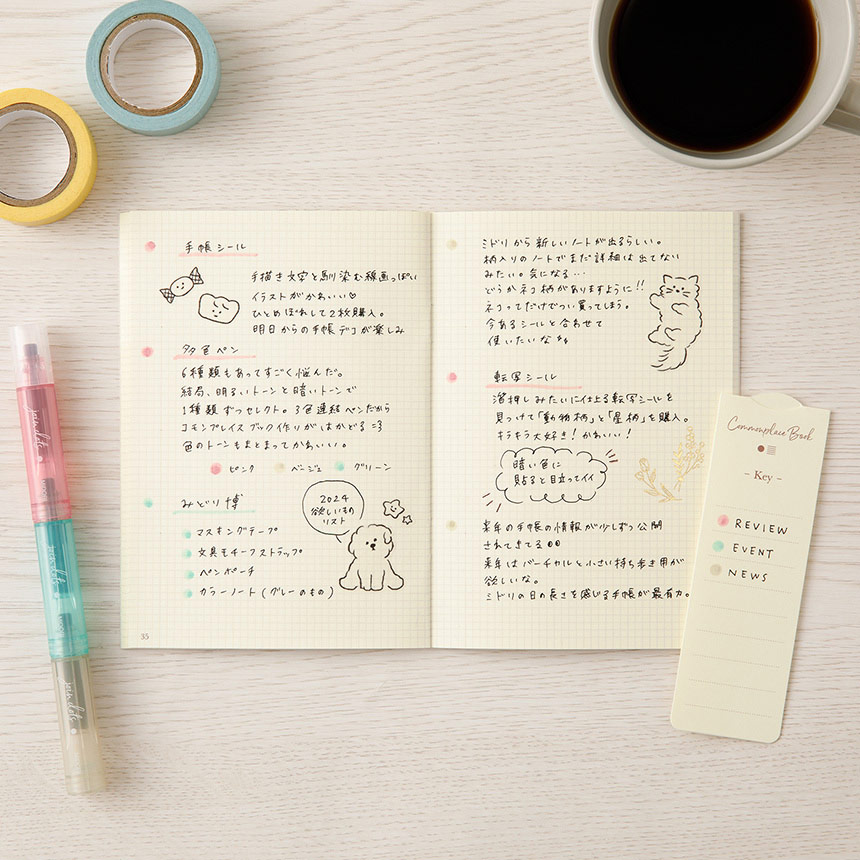 手帳シール
手描き文字と馴染む線画っぽい
イラストがかわいい♡
ひとめぼれして2枚購入。
明日からの手帳デコが楽しみ
多色ペン
6種類もあってすごく悩んだ。
結局、明るいトーンと暗いトーンで
1種類ずつセレクト。3色連結ペンだから
コモンプレイスブック作りがはかどる
色のトーンもまとまってかわいい。
ピンク ベージュ グリーン
みどり博
2024
欲しいもの
リスト
マスキングテープ
文具モチーフストラップ
ペンポーチ
カラーノート(グレーのもの)
35
ミドリから新しいノートが出るらしい。
柄入りのノートでまだ詳細は出てない
みたい。気になる…
どうかネコ柄がありますように!!
ネコってだけでつい買ってしまう。
今あるシールと合わせて
使いたいな
転写シール
箔押しみたいに仕上る転写シールを
見つけて「動物柄」と「星柄」を購入。
キラキラ大好き!かわいい!
暗い色に
貼ると目立ってイイ
来年の手帳の情報が少しずつ公開
されてきてる
来年はバーチカルと小さい持ち歩き用が
欲しいな。
ミドリの日の長さを感じる手帳が最有力。
Commonplace Book
- Key -
REVIEW
EVENT
NEWS